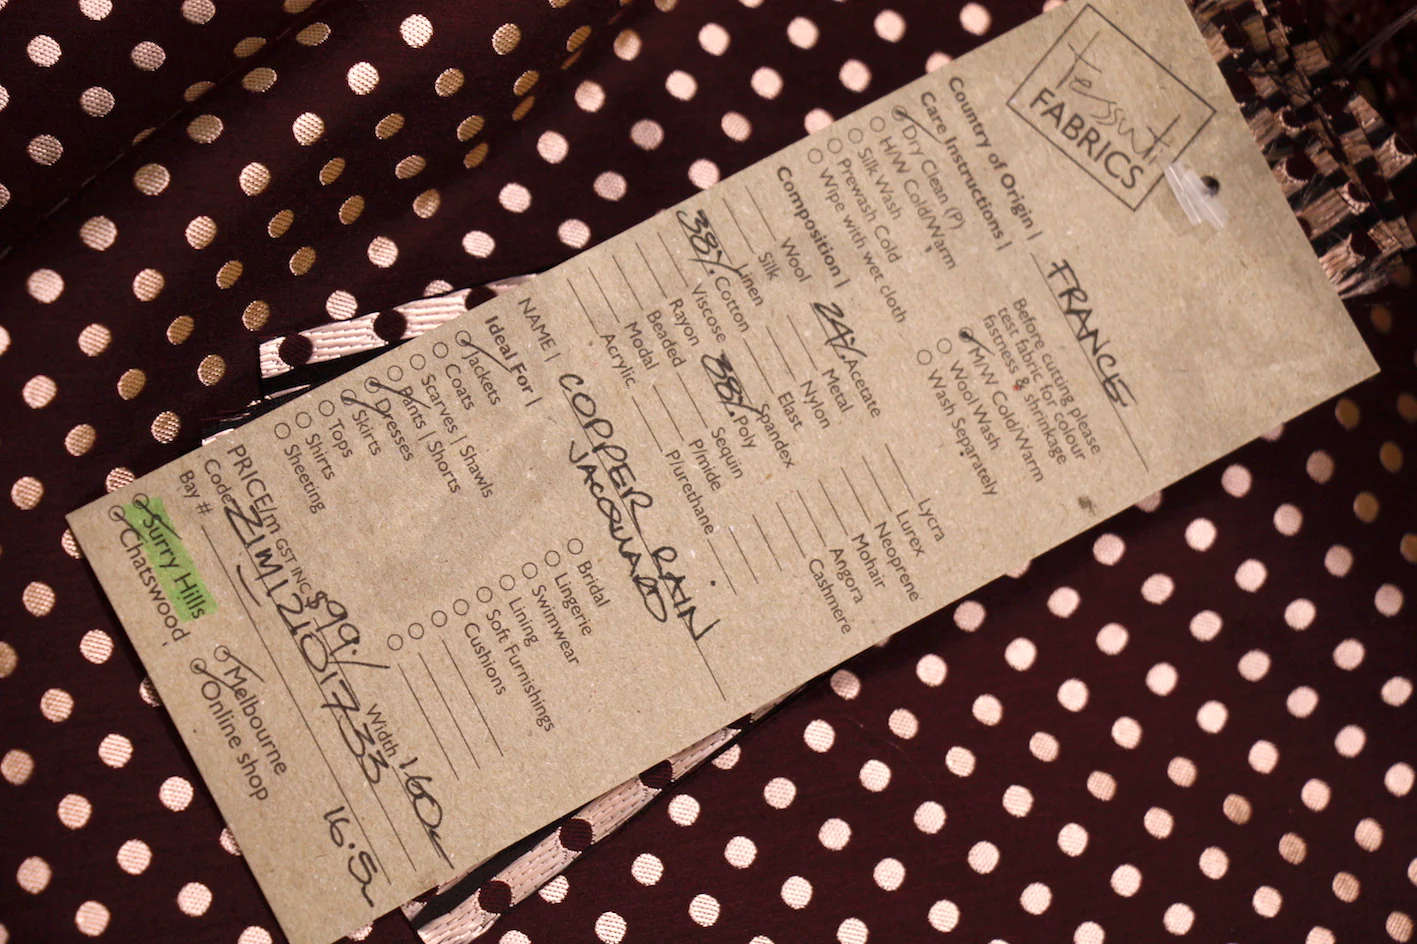 tessuti
FABRICS
Country of Origin | FRANCE
Care Instructions |
Before cutting please
test fabric for colour
fastness & shrinkage
Dry Clean (P)
H/W Cold/Warm
Silk Wash
Prewash Cold
Wipe with wet cloth
M/W Cold/Warm
Wool Wash
Wash Separately
Composition |
Wool
Silk
Linen
38% Cotton
Viscose
Rayon
Beaded
Modal
Acrylic
24% Acetate
Metal
Nylon
Elast
Spandex
38% Poly
Sequin
P/mide
P/urethane
Lycra
Lurex
Neoprene
Mohair
Angora
Cashmere
NAME | COPPER RAIN
JACQUARD
Ideal For |
Jackets
Coats
Scarves | Shawls
Pants | Shorts
Dresses
Skirts
Tops
Shirts
Sheeting
Bridal
Lingerie
Swimwear
Lining
Soft Furnishings
Cushions
PRICE/m GST INC $99./ Width 160c
Code ZIM12101733
Bay # 16.5m
Surry Hills
Chatswood
Melbourne
Online shop